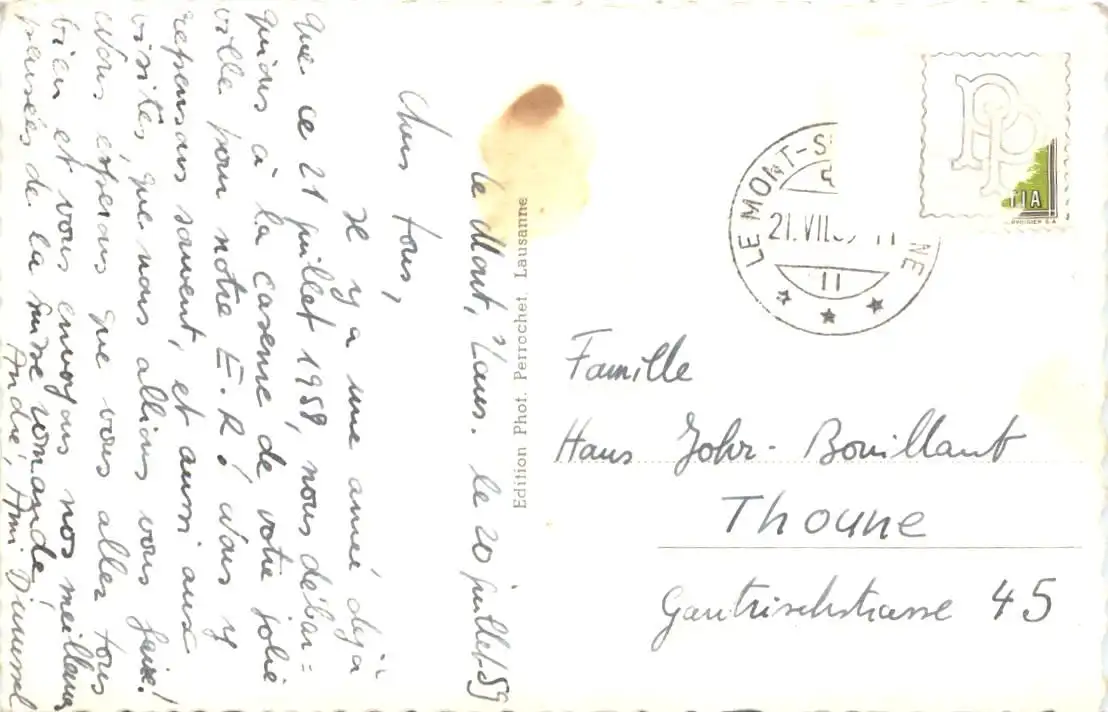 le Mont s/Laus. le 20 juillet 59
Chers tous,
Il y a une année déjà
que ce 21 juillet 1958, nous débar=
quions à la caserne de votre jolie
ville pour notre E.R! Nous y
repensons souvent, et aussi aux
visites, que nous allions vous faire!
Nous espérons que vous allez tous
bien et vous envoyons nos meilleures
pensées de la Suisse romande.
André, Ami
Edition Phot. Perrochet, Lausanne
LE MONT-S NE
21.VII.59 11
11
PP
TIA
Famille
Hans Johr-Bouillant
Thoune
Gantrischstrasse 45